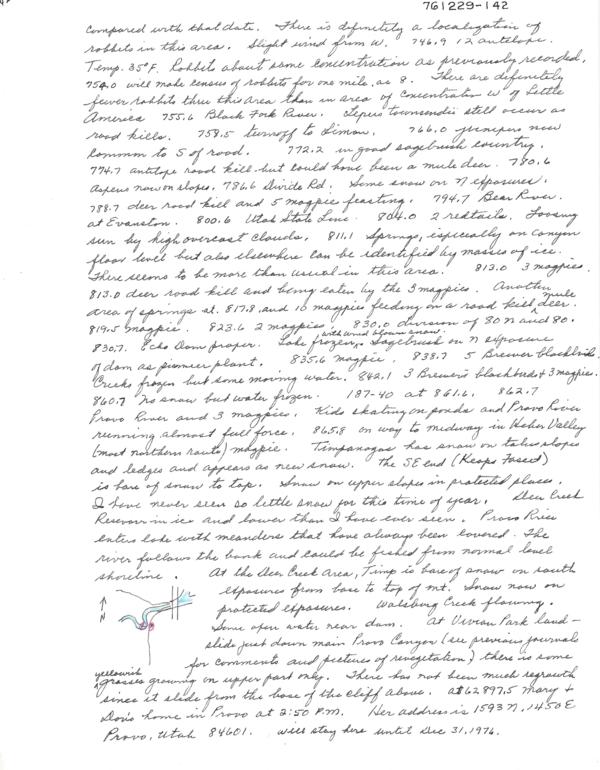 761229-142
compared with that date. There is definitely a localization of
rabbits in this area. Slight wind from W. 746.9 12 antelope.
Temp. 35°F. Rabbits about same concentration as previously recorded.
754.0 will make census of rabbits for one mile, as 8. There are definitely
fewer rabbits thru this area than in area of concentration W of Little
America 755.6 Black Fork River. Lepus townsendii still occur as
road kills. 759.5 turnoff to Liman. 766.0 junipers now
common to S of road. 772.2 in good sagebrush country.
774.7 antelope road kill but could have been a mule deer. 780.6
Aspens now on slopes. 786.6 Divide Rd. Some snow on N exposures.
788.7 deer road kill and 5 magpies feasting. 794.7 Bear River
at Evanston. 800.6 Utah State Line 804.0 2 redtails. Loosing
sun by high overcast clouds. 811.1 Springs, especially on canyon
floor level but also elsewhere can be identified by masses of ice.
There seems to be more than usual in this area. 813.0 3 magpies.
813.0 deer road kill and being eaten by the 3 magpies. Another
area of springs at 817.8 and 10 magpies feeding on a road kill mule deer.
819.5 magpie. 823.6 2 magpies 830.0 division of 80 N and 80.
830.7. Echo Dam proper. Lake frozen, with wind blown snow. Sagebrush on N exposure
of dam as pioneer plant. 835.6 magpie. 838.7 5 Brewer blackbirds
Creeks frozen but some moving water. 842.1 3 Brewer's blackbirds + 3 magpies.
860.7 no snow but water frozen. 187-40 at 861.6. 862.7
Provo River and 3 magpies. Kids skating on ponds and Provo River
running almost full force. 865.8 on way to midway in Heber Valley
(most northern route) magpie. Timpanogas has snow on talus slopes
and ledges and appears as new snow. The SE end
is bare of snow to top. Snow on upper slopes in protected places.
I have never seen so little snow for this time of year. Deer Creek
Reservoir in ice and lower than I have ever seen. Provo River
enters lake with meanders that have always been covered. The
river follows the bank and could be fished from normal level
shoreline. At the Deer Creek Area, Timp is bare of snow on south
exposures from base to top of mt. Snow now on
protected exposures. Wallsburg Creek flowing.
Some open water near dam. At Vivian Park land-
slide just down main Provo Canyon (see previous journals
for comments and pictures of revegetation) there is some
yellowish grasses growing on upper part only. There has not been much regrowth
since it slide from the base of the cliff above. at 62897.5 Mary +
Don's home in Provo at 2:50 P.M. Her address is 1593 N, 1450 E
Provo, Utah 84601. Will stay here until Dec 31, 1976.
N